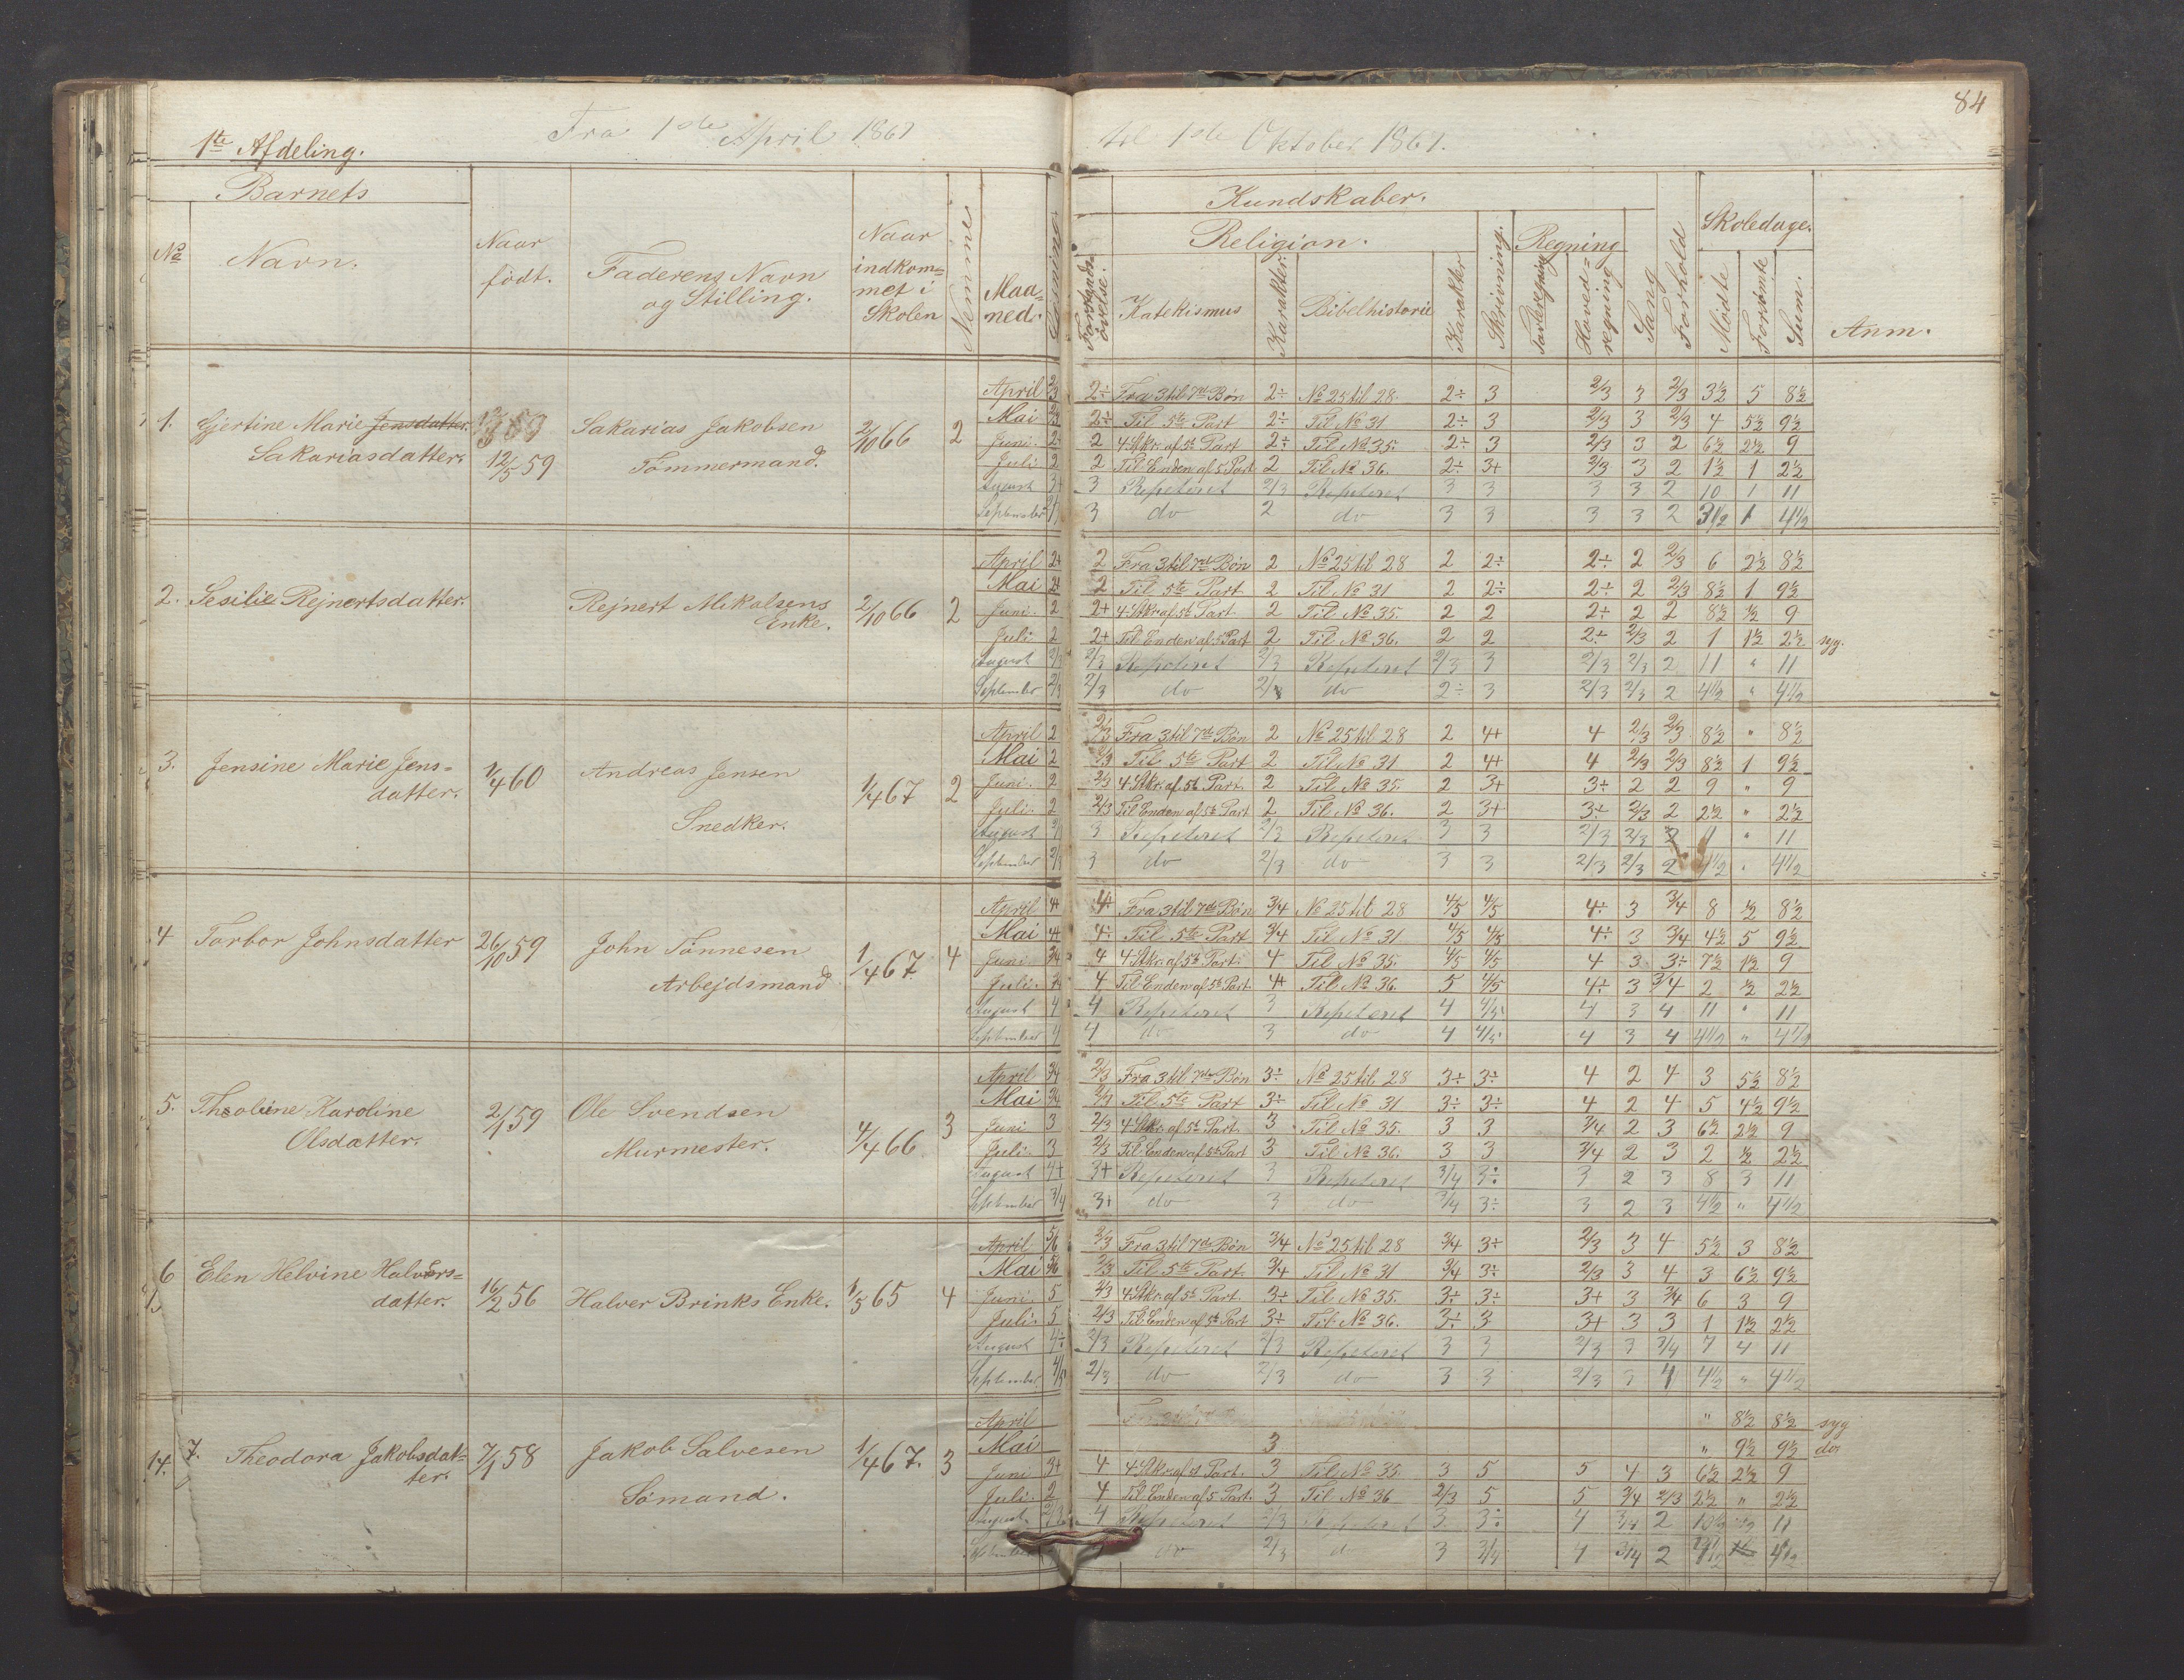 84
Fra 1ste April 1867 til 1ste Oktober 1867.
1te Afdeling.
Barnets
Kundskaber.
Skoledage.
Religion.
Regning
No Navn. Naar født. Faderens Navn og Stilling. Naar indkommet i Skolen Nemme Maaned. Læsning Forstandsøvelse. Katekismus Karakter Bibelhistorie Karakter Skrivning. Tavleregning Hovedregning Sang Forhold Mødte Forsømte Sum. Anm.
1. Gjertine Marie Jensdatter.
Sakariasdatter. 12/5 59 Sakarias Jakobsen
Tømmermand. 2/10 66 2
April 2/3 2÷ Fra 3 til 7de Bøn 2÷ No 25 til 28. 2÷ 3 2/3 3 2/3 3½ 5 8½
Mai 2/3 2÷ Til 5te Part 2÷ Til No 31 2÷ 3 2/3 3 2/3 4 5½ 9½
Juni. 2÷ 2 4 Stkr. af 5te Part 2÷ Til No 35. 2÷ 3 2/3 3 2 6½ 2½ 9
Juli 2 2 Til Enden af 5 Part 2 Til No 36. 2÷ 3+ 2/3 3 2 1½ 1 2½
August 3+ 3 Repeteret 2/3 Repeteret 3 3 3 3 2 10 1 11
September 3 do 2 do 3 3 3 3 2 3½ 1 4½
2. Sesilie Rejnertsdatter. Rejnert Mikalsens
Enke. 2/10 66 2
April 2+ 2 Fra 3 til 7de Bøn 2 No 25 til 28 2 2÷ 2÷ 2 2/3 6 2½ 8½
Mai 2+ 2 Til 5te Part 2 Til No 31 2 2÷ 2÷ 2 2/3 8½ 1 9½
Juni. 2 2+ 4 Stkr af 5te Part 2 Til No 35. 2 2 2÷ 2 2 8½ ½ 9
Juli 2 2+ Til Enden af 5 Part 2 Til No 36. 2 2 2÷ 2/3 2 1 1½ 2½ syg.
August 2/3 2/3 Repeteret 2/3 Repeteret 2/3 3 2/3 2/3 2 11 " 11
September 2/3 2/3 do do 2÷ 3 2/3 2/3 2 4½ " 4½
3. Jensine Marie Jens=
datter. 1/4 60 Andreas Jensen
Snedker. 1/4 67 2
April 2 2/3 Fra 3 til 7de Bøn 2 No 25 til 28 2 4+ 4 2/3 2/3 8½ " 8½
Mai 2 2/3 Til 5te Part 2 Til No 31 2 4+ 4 2/3 2/3 8½ 1 9½
Juni. 2 2/3 4 Stkr. af 5te Part. 2 Til No 35. 2 3+ 3÷ 2 2 9 " 9
Juli. 2 2/3 Til Enden af 5te Part 2 Til No 36. 2 3+ 3÷ 2/3 2 2½ " 2½
August 3 Repeteret 2/3 Repeteret 3 3 2/3 2/3 " 11
September 2/3 3 do 2/3 do 3 3 2/3 2/3 2 4½ " 4½
4 Torbor Johnsdatter 26/10 59 John Tønnesen
Arbejdsmand 1/4 67. 4
April 4+ 4÷ Fra 3 til 7de Bøn 3/4 No 25 til 28 4/5 4/5 4÷ 3 3/4 8 ½ 8½
Mai 4+ 4÷ Til 5te Part 3/4 Til No 31 4/5 4/5 4÷ 3 3/4 4½ 5 9½
Juni 3/4 4 4 Stkr. af 5te Part. 4 Til No 35. 4/5 4/5 4 3 3÷ 7½ 1½ 9
Juli. 3/4 4 Til Enden af 5te Part. 4+ Til No 36. 5 4/5 4÷ 3 3/4 2 ½ 2½
August 4 4 Repeteret 3 Repeteret 4 4/5 4 3 4 11 " 11
September 4 4 do 3 do 4 4/5 4 3 4 4½ " 4½
5. Theoline Karoline
Olsdatter. 2/1 59 Ole Svendsen
Murmester. 4/4 66 3
April 3/4 2/3 Fra 3 til 7de Bøn 3÷ No 25 til 28 3÷ 3÷ 4 2 4 3 5½ 8½
Mai 3/4 2/3 Til 5te Part 3÷ Til No 31 3÷ 3÷ 4 2 4 5 4½ 9½
Juni 3 2/3 4 Stkr. af 5te Part. 3 Til No 35. 3 3 3/4 2 3 6½ 2½ 9
Juli. 3 2/3 Til Enden af 5te Part 3 Til No 36. 3 3 3/4 2 3 2 ½ 2½
August 4+ 3+ Repeteret 3 Repeteret 3/4 3÷ 3 2 3 8 3 11
September 3/4 3+ do 3 do 3/4 3÷ 3 2 3 4½ " 4½
6 Elen Helvine Halvors=
datter. 16/2 56 Halver Brinks Enke. 1/5 65 4
April 5/6 2/3 Fra 3 til 7de Bøn 3/4 No 25 til 28 3/4 3÷ 2/3 3 4 5½ 3 8½
Mai 5/6 2/3 Til 5te Part. 3/4 Til No 31 3/4 3÷ 2/3 3 4 3 6½ 9½
Juni. 5 2/3 4 Stkr. af 5te Part 3÷ Til No 35. 3÷ 3÷ 3+ 3 3/4 6 3 9
Juli. 5 2/3 Til Enden af 5te Part 3÷ Til No 36. 3÷ 3 3+ 3 3 1 1½ 2½
August 4÷ 2/3 Repeteret 2/3 Repeteret 3 3 2/3 3 3/4 7 4 11
September 4/5 2/3 do 2/3 do 3 3 2/3 3 4 4½ " 4½
14. 7. Theodora Jakobsdat=
ter. 7/1 58 Jakob Salvesen
Sømand. 1/4 67. 3
April " 8½ 8½ syg
Mai 3 " 9½ 9½ do
Juni 3+ 4 4 Stkr af 5t Part. 3 Til No 35. 3 5 5 4 3 6½ 2½ 9
Juli. 2 4 Til Enden af 5 Part. 3 Til No 36 2/3 5 5 3/4 2/3 2½ " 2½
August. 4 Repeteret 2/3 Repeteret 3 3÷ 4 3/4 2 10½ ½ 11
September do 2/3 do 3 3/4 4 3/4 2 4½